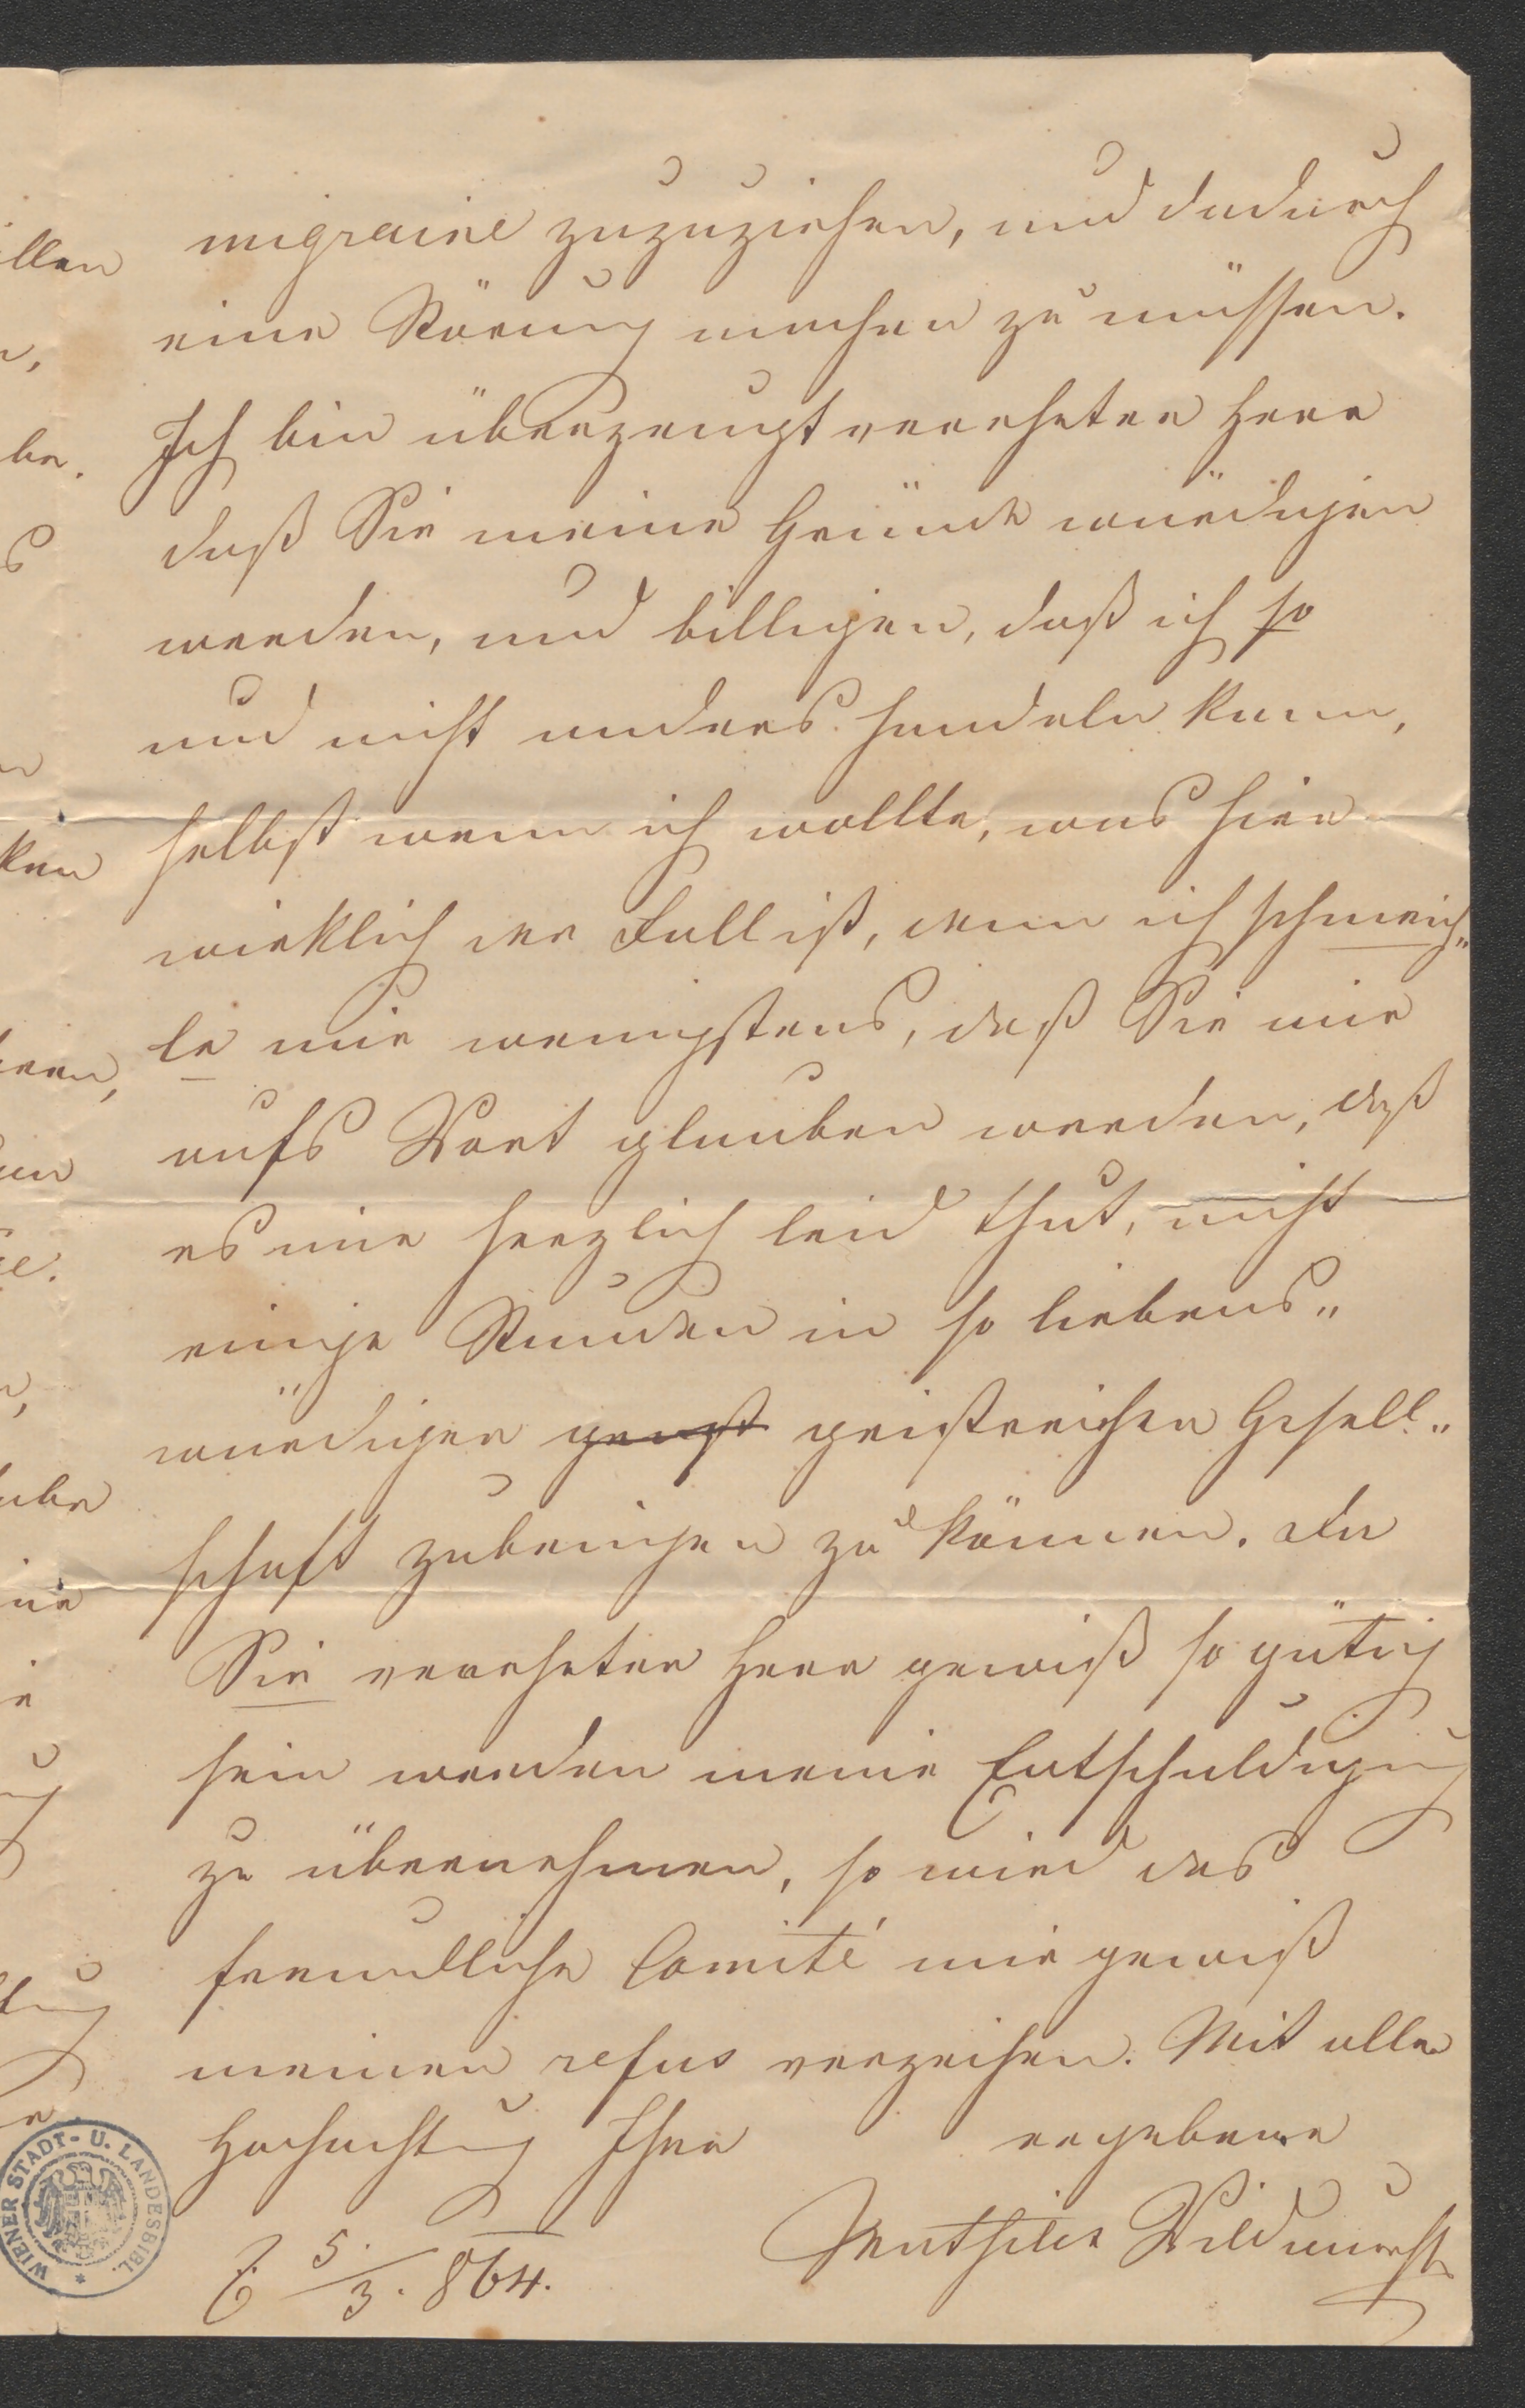 migraine zuzuziehen, und dadurch
eine Störung machen zu müssen.
Ich bin überzeugt verehrter Herr
daß Sie meine Gründe würdigen
werden, und billigen, daß ich so
und nicht anders handeln kann,
selbst wenn ich wollte, was hier
wirklich der Fall ist, denn ich schmeich„
le mir wenigstens, daß Sie mir
aufs Wort glauben werden, daß
es mir herzlich leid thut, nicht
einige Stunden in so liebens„
würdiger geistreichen Gesell„
schaft zubringen zu können. Da
Sie verehrter Herr gewiß so gütig
sein werden meine Entschuldigung
zu übernehmen, so wird das
freundliche Comité mir gewiß
meinen refus verzeihen. Mit aller
Hochachtung Ihre ergebene
Mathilde Wildauer
5./3. 864.
WIENER STADT- U. LANDESBIBL.